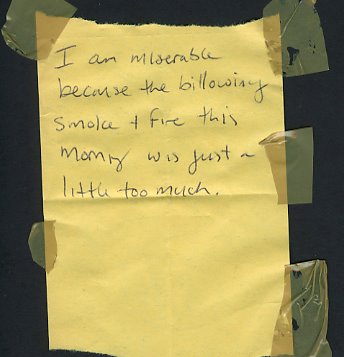 I am miserable
because the billowing
smoke + fire this
morning was just a
little too much.